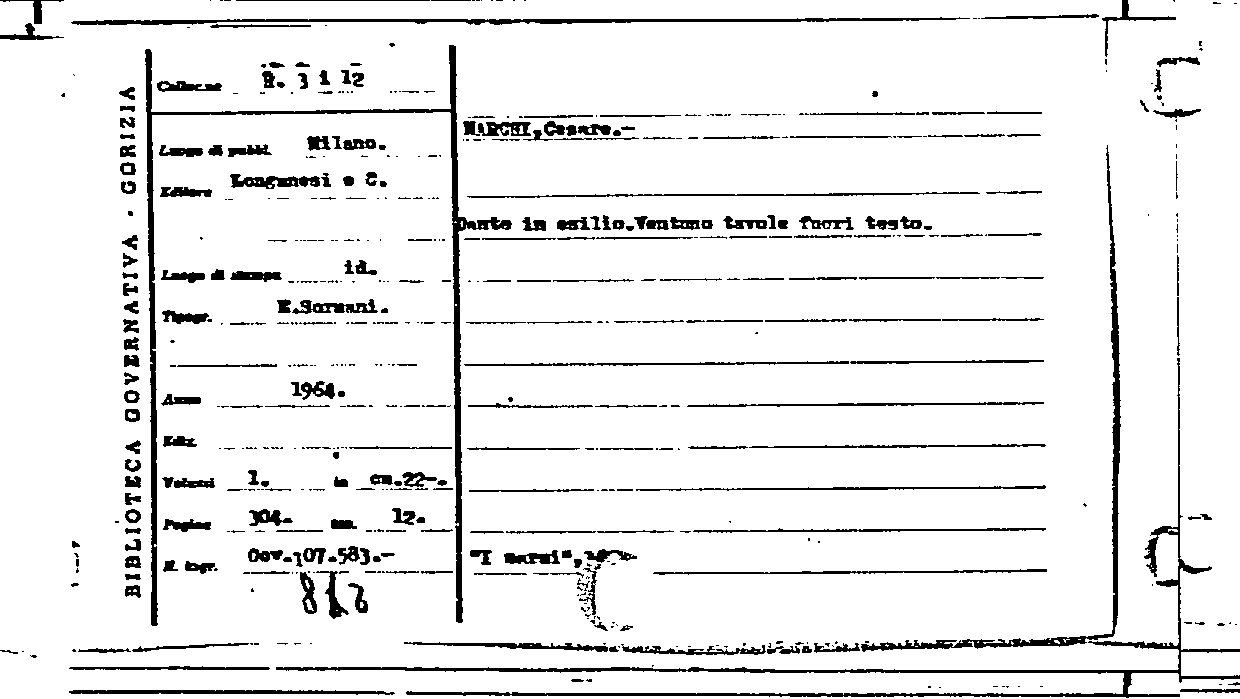 BIBLIOTECA GOVERNATIVA - GORIZIA
Colloc.ne R. 3 i 12
Luogo di pubbl. Milano.
Editore Longanesi e C.
Luogo di stampa id.
Tipogr. E.Sormani.
Anno 1964.
Ediz.
Volumi 1. in cm.22-.
Pagine 304- 12-
N. ingr. Gov.107.583.-
MARCHI,Cesare.-
Dante in esilio.Ventuno tavole fuori testo.
"I marmi",